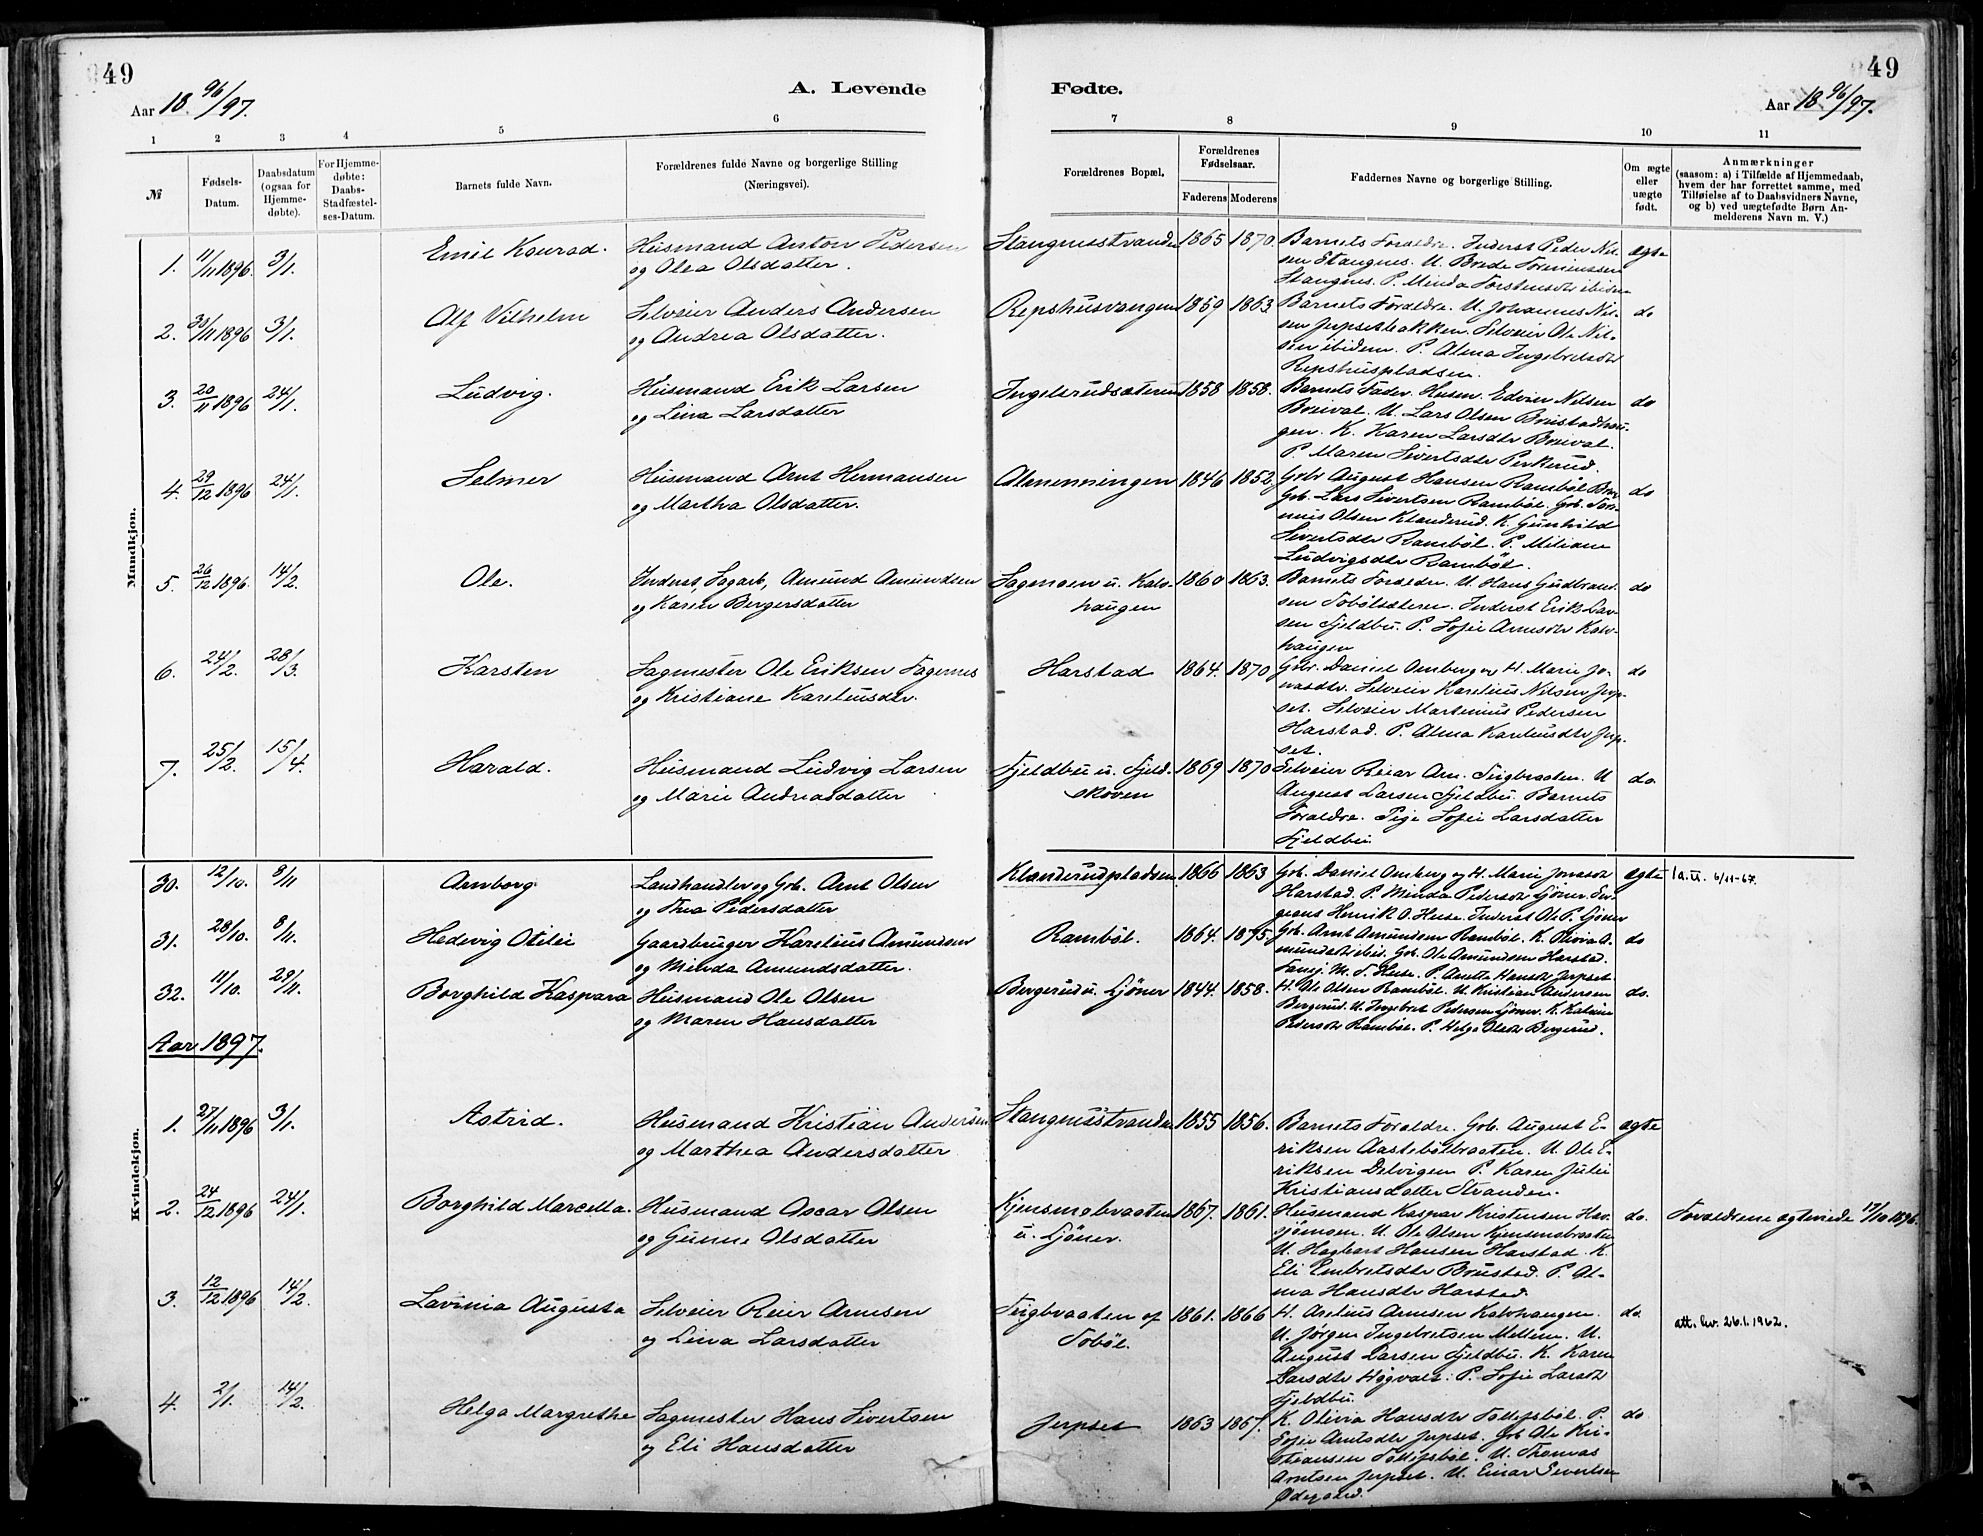 49
Aar 18 96/97.
A. Levende
Fødte.
49
Aar 18 96/97.
1 2 3 4 5 6 7 8 9 10 11
№
Fødsels-
Datum.
Daabsdatum
(ogsaa for
Hjemme-
døbte).
For Hjemme-
døbte:
Daabs-
Stadfæstel-
ses-Datum.
Barnets fulde Navn.
Forældrenes fulde Navne og borgerlige Stilling
(Næringsvei).
Forældrenes Bopæl,
Forældrenes
Fødselsaar.
Faderens
Moderens
Faddernes Navne og borgerlige Stilling.
Om ægte
eller
uægte
født.
Anmærkninger
(saasom: a) i Tilfælde af Hjemmedaab,
hvem der har forrettet samme, med
Tilføielse af to Daabsvidners Navne,
og b) ved uægtefødte Børn An-
melderens Navn m. V.)
Mandkjøn.
1. 11/11 1896. 3/1. Emil Konrad. Husmand Anton Pedersen
og Olea Olsdatter.
Stangnesstranden 1865 1870.
Barnets Foraldre. Inderst Peder Nil-
sen Stangnes. U. Brede
Stangnes. P. Minda Torstensdtr ibidem
ægte
2. 30/11 1896 3/1. Alf Vilhelm Selveier Anders Andersen
og Andrea Olsdatter.
Repshusvangen 1859 1863.
Barnets Foraldre. U. Johannes Nil-
sen Jerpsetbakken. Selveier Ole Nil-
sen ibidem. P. Alma Ingebretsdtr
Repshuspladsen.
do
3. 20/11 1896 24/1. Ludvig. Husmand Erik Larsen
og Lina Larsdatter
Ingelsrudsæteren 1858 1858.
Barnets Fader. Husm. Edvin Nilsen
Breival. U. Lars Olsen Brustadhau-
gen. K. Karen Larsdtr Breival.
P. Maren Sivertsdtr Perkerud.
do
4. 29/12 1896 24/1. Selmer Husmand Arnt Hermansen
og Martha Olsdatter.
Almenningen 1846 1852.
Gbr August Hansen Rambøl
Gb. Lars Sivertsen Rambøl. Gb. Tor-
nius Olsen Klanderud. K. Gunhild
Sivertsdtr Rambøl. P. Miliane
Ludvigsdtr Rambøl.
do
5. 26/12 1896. 14/2. Ole. Inderst, Sagarb, Amund Amundsen
og Karen Bergersdatter
Sagmoen u. Kalv-
haugen
1860 1863.
Barnets Foraldre. U. Hans Gudbrand-
sen Tobølsæteren. Inderst Erik Lar-
sen Fjeldbu. P. Sofie Arnesdtr Kalv-
haugen
do
6. 24/2. 28/3. Karsten Sagmester Ole Eriksen Fagernes
og Kristiane Kareliusdtr.
Harstad 1864. 1870
Gbr. Daniel Amberg og H. Marie Jo-
nasdtr. Selveier Karelius Nilsen Jerp-
set. Selveier Martinius Pedersen
Harstad. P. Alma Kareliusdtr Jerp-
set.
do
7. 25/2. 15/4. Harald. Husmand Ludvig Larsen
og Marie Andreasdatter
Fjeldbu u. Fjeld-
skoven
1869 1870
Selveier Reiar Arn. Tugbraaten. U
August Larsen Fjeldbu. Barnets
Foraldre. Pige Sofie Larsdatter
Fjeldbu.
do.
Kvindekjøn.
30. 12/10. 8/11 Arnborg. Landhandler og Gb. Arnt Olsen
og Thea Pedersdatter
Klanderudpladsen 1866 1863
Gb. Daniel Amberg og H. Marie Jonasdtr
Harstad. P. Minda Pedersdtr Sjøner
Henrik O. Huse. Inderst Ole P. Sjøner
ægte
I a.u. 6/11-67.
31. 28/10. 8/11. Hedvig Otilie Gaardbruger Karelius Amundsen
og Minda Amundsdatter.
Rambøl. 1864. 1875.
Gb. Arnt Amundsen Rambøl. K. Olivia A-
mundsdtr ibid. Gb. Ole Amundsen Harstad.
M. T. Huse. P. Anette Hansdtr Jerpset
do
32. 11/10. 29/11. Borghild Kaspara Husmand Ole Olsen
og Maren Hansdatter
Bergerud u. Sjøner 1844. 1858.
H. Ole Olsen Rambøl. U. Kristian Andersen
Bergerud. U. Ingebret Pedersen Sjøner. K. Kaline
Pedersdtr Rambøl. P. Helga Olsdtr Bergerud.
do.
Aar 1897.
1. 27/11 1896 3/1. Astrid. Husmand Kristian Andersen
og Marthea Andersdatter
Stangnesstranden 1855 1856.
Barnets Foraldre. Gb. August E-
riksen Aastebølbraaten. U. Ole E-
riksen Delvigen P. Karen Julie
Kristiansdatter Stranden.
ægte
2. 24/12 1896 24/1. Borghild Marcella. Husmand Oscar Olsen
og Gunne Olsdatter
Kjensmobraaten
u. Sjöner.
1867. 1861.
Husmand Kaspar Kristensen Hav-
sjømoen. U. Ole Olsen Kjensmobraaten
U. Hagbart Hansen Harstad. K.
Eli Embretsdtr Brustad. P. Al-
ma Hansdtr Harstad.
do.
Foraldrene ægteviede 17/10 1896.
3. 12/12 1896 14/2. Lavinia Augusta Selveier Reier Arnesen
og Lina Larsdatter
Tugbraaten af
Tobøl.
1861. 1866
H. Aselius Arnesen Kalvhaugen.
U. Jørgen Ingebretsen Mellem. U.
August Larsen Fjeldbu. K. Karen
Larsdtr Høgvals. P. Sofie Larsdtr
Fjeldbu.
do.
att. lev. 26.1.1962.
4. 2/1. 14/2. Helga Margrethe Sagmester Hans Sivertsen
og Eli Hansdatter
Jerpset 1863 1867.
K. Olivia Hansdtr Tollefsbøl. P.
Sofie Arntsdtr Jerpset. Gb Ole Kri-
stiansen Tollefsbøl. U. Thomas
Arntsen Jerpset. U. Einar Sivertsen
Ødegaard.
do